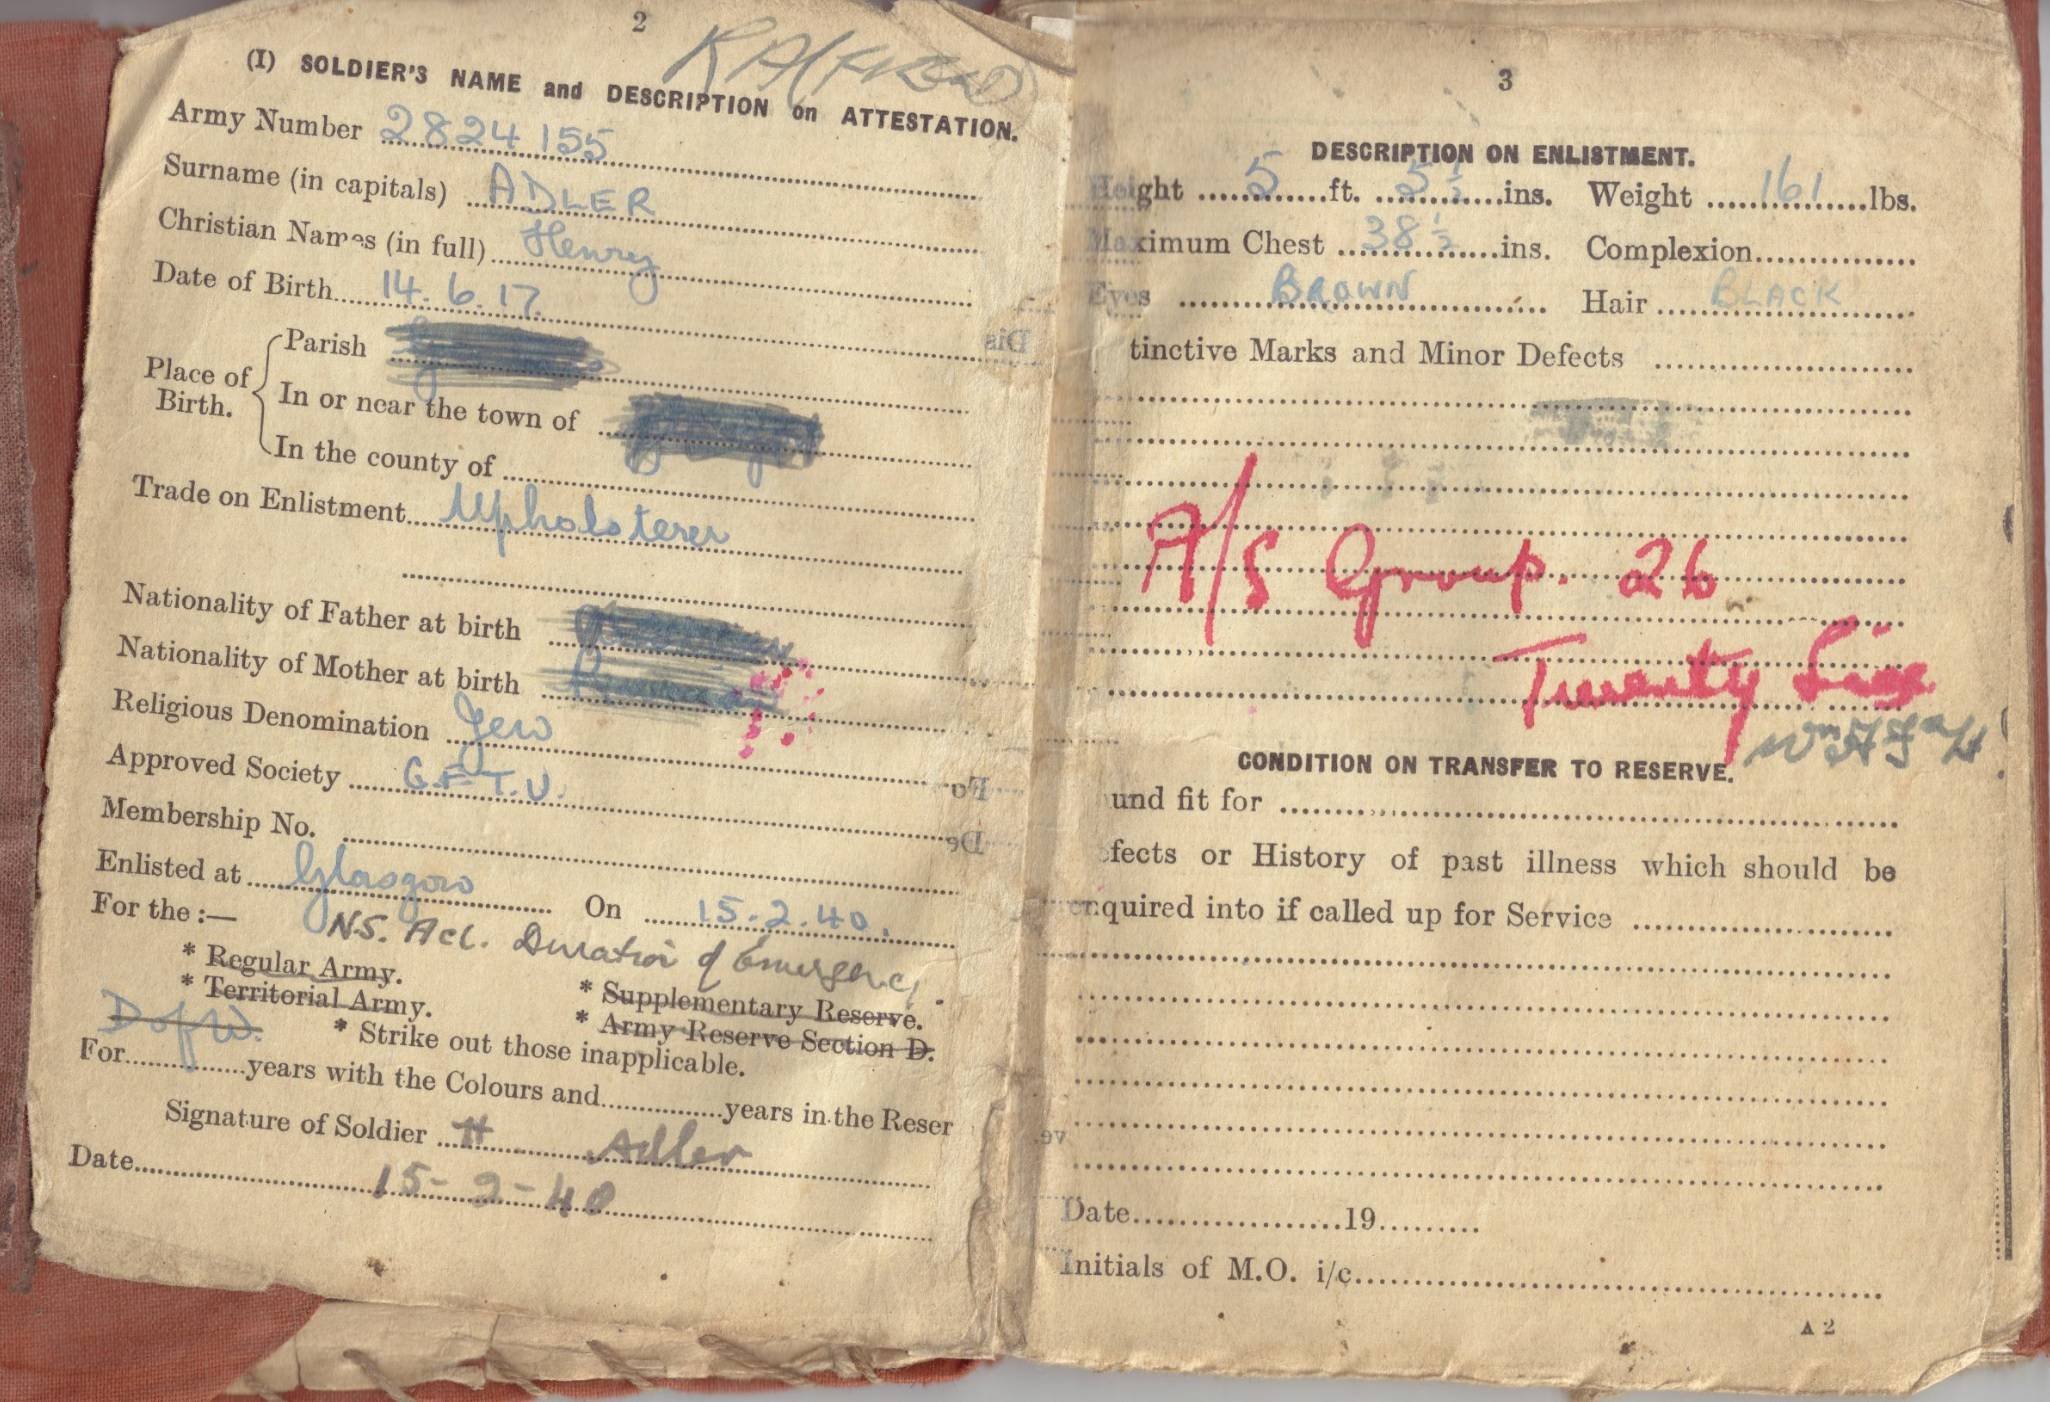 2
(I) SOLDIER'S NAME and DESCRIPTION on ATTESTATION.
Army Number 2824155
Surname (in capitals) ADLER
Christian Names (in full) Henry
Date of Birth 14.6.17.
Place of Birth.
Parish
In or near the town of
In the county of
Trade on Enlistment Upholsterer
Nationality of Father at birth
Nationality of Mother at birth
Religious Denomination Jew
Approved Society G.F.T.U.
Membership No.
Enlisted at Glasgow On 15.2.40.
For the :— N.S. Act. Duration of Emergency.
* Regular Army.
* Territorial Army.
* Supplementary Reserve.
* Army Reserve Section D.
D of W. * Strike out those inapplicable.
For..............years with the Colours and..............years in the Reser
Signature of Soldier H Adler
Date 15-2-40
3
DESCRIPTION ON ENLISTMENT.
Height 5 ft. 5 1/2 ins. Weight 161 lbs.
Maximum Chest 38 1/2 ins. Complexion
Eyes BROWN Hair BLACK
tinctive Marks and Minor Defects
A/S Group. 26
Twenty Six
CONDITION ON TRANSFER TO RESERVE.
und fit for
efects or History of past illness which should be
enquired into if called up for Service
Date..................19.........
Initials of M.O. i/c
A 2